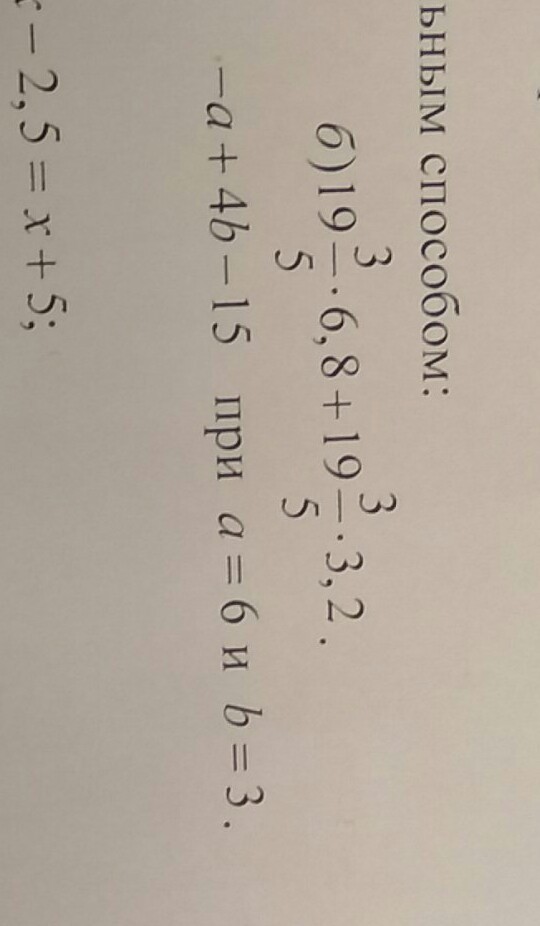 ьным способом:
б) 19 3/5 · 6,8 + 19 3/5 · 3,2.
–a + 4b – 15 при a = 6 и b = 3.
– 2,5 = x + 5;